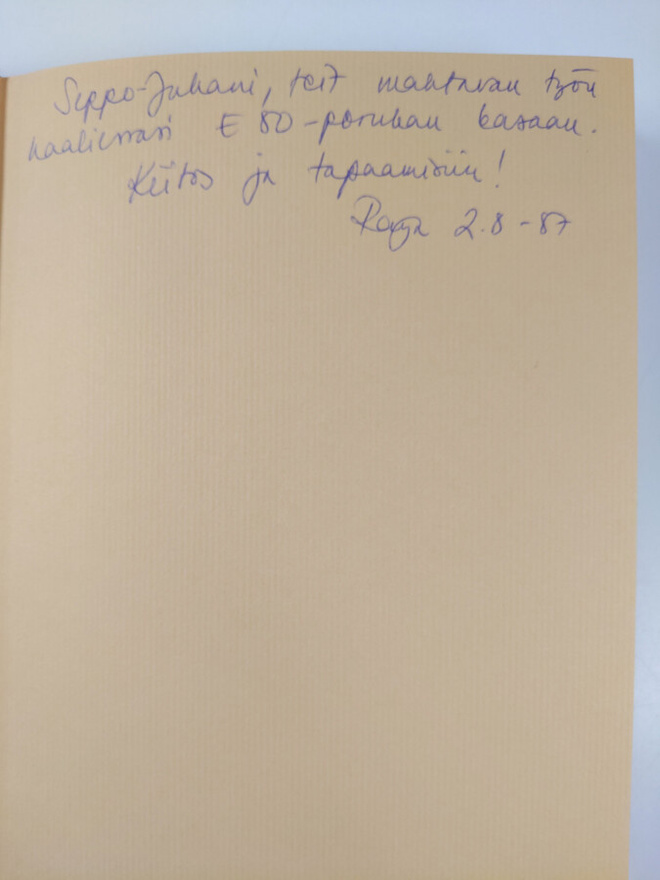 Seppo-Juhani, teit mahtavan työn
haaliessasi E 80-porukan kasaan.
Kiitos ja tapaamisiin!
Raija 2.8 -87